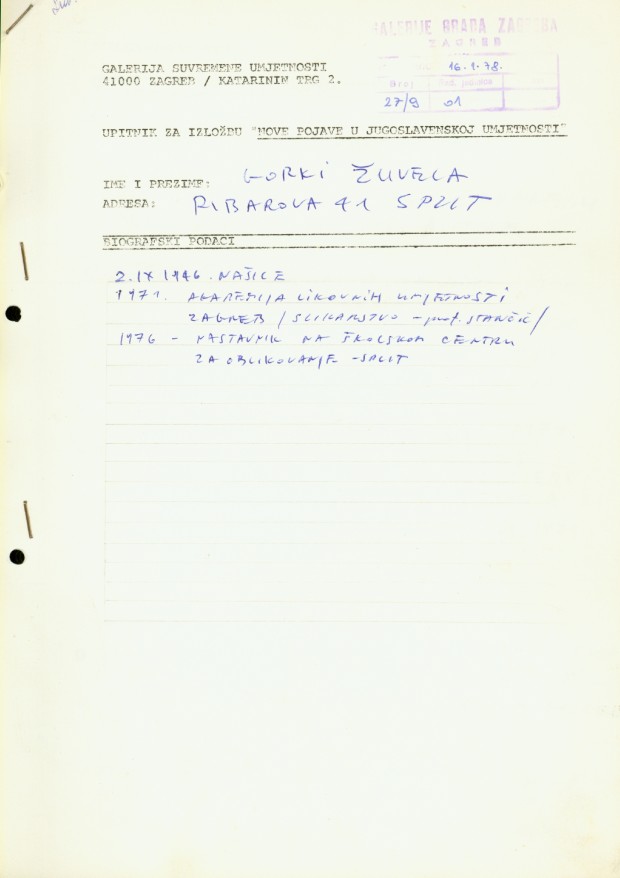 GALERIJE GRADA ZAGREBA
ZAGREB
16.1.78.
Broj
27/9 01
GALERIJA SUVREMENE UMJETNOSTI
41000 ZAGREB / KATARININ TRG 2.
UPITNIK ZA IZLOŽBU "NOVE POJAVE U JUGOSLAVENSKOJ UMJETNOSTI"
IME I PREZIME: GORKI ŽUVELA
ADRESA: RIBAROVA 41 SPLIT
BIOGRAFSKI PODACI
2. IX 1946. NAŠICE
1971. AKADEMIJA LIKOVNIH UMJETNOSTI
ZAGREB / SLIKARSTVO - prof. STANČIĆ /
1976 - NASTAVNIK NA ŠKOLSKOM CENTRU
ZA OBLIKOVANJE - SPLIT